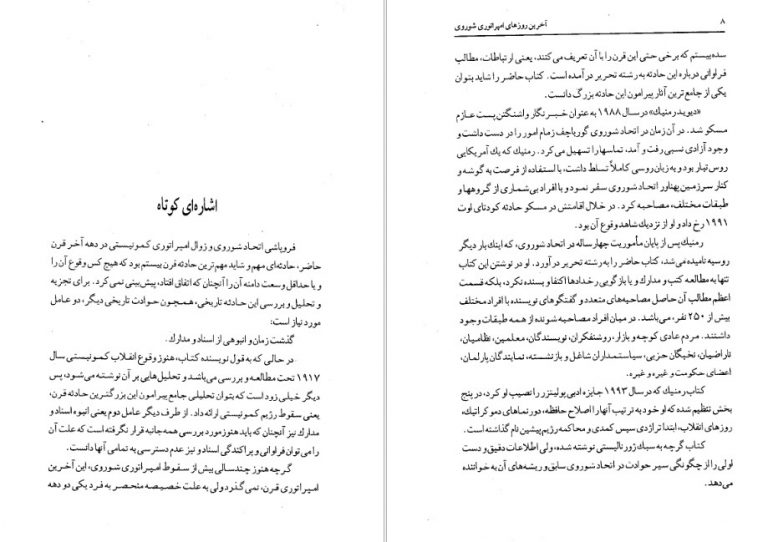 اشاره‌ای کوتاه
فروپاشی اتحاد شوروی و زوال امپراتوری کمونیستی در دهه آخر قرن
حاضر، حادثه‌ای مهم و شاید مهم‌ترین حادثه قرن بیستم بود که هیچ کس وقوع آن را
و یا حداقل وسعت دامنه آن را آنچنان که اتفاق افتاد، پیش‌بینی نمی‌کرد. برای تجزیه
و تحلیل و بررسی این حادثه تاریخی، همچون حوادث تاریخی دیگر، دو عامل
مورد نیاز است:
گذشت زمان و انبوهی از اسناد و مدارک.
در حالی که به قول نویسنده کتاب، هنوز وقوع انقلاب کمونیستی سال
۱۹۱۷ تحت مطالعه و بررسی می‌باشد و تحلیل‌هایی بر آن نوشته می‌شود، پس
دیگر خیلی زود است که بتوان تحلیلی جامع پیرامون این بزرگترین حادثه قرن،
یعنی سقوط رژیم کمونیستی ارائه داد. از طرف دیگر عامل دوم یعنی انبوه اسناد و
مدارک نیز آنچنان که باید هنوز مورد بررسی همه جانبه قرار نگرفته است که علت آن
را می‌توان فراوانی و پراکندگی اسناد و نیز عدم دسترسی به تمامی آنها دانست.
گرچه هنوز چندسالی بیش از سقوط امپراتوری شوروی، این آخرین
امپراتوری قرن، نمی‌گذرد ولی به علت خصیصه منحصر به فرد یکی دو دهه
۸ آخرین روزهای امپراتوری شوروی
سده بیستم که برخی حتی این قرن را با آن تعریف می‌کنند، یعنی ارتباطات، مطالب
فراوانی درباره این حادثه به رشته تحریر درآمده است. کتاب حاضر را شاید بتوان
یکی از جامع‌ترین آثار پیرامون این حادثه بزرگ دانست.
«دیوید رمنیک» در سال ۱۹۸۸ به عنوان خبرنگار واشنگتن پست عازم
مسکو شد. در آن زمان در اتحاد شوروی گورباچف زمام امور را در دست داشت و
وجود آزادی نسبی رفت و آمد، تماسها را تسهیل می‌کرد. رمنیک که یک آمریکایی
روس تبار بود و به زبان روسی کاملاً تسلط داشت، با استفاده از فرصت به گوشه و
کنار سرزمین پهناور اتحاد شوروی سفر نمود و با افراد بی‌شماری از گروهها و
طبقات مختلف، مصاحبه کرد. در خلال اقامتش در مسکو حادثه کودتای اوت
۱۹۹۱ رخ داد و او از نزدیک شاهد وقوع آن بود.
رمنیک پس از پایان مأموریت چهارساله در اتحاد شوروی، که اینک بار دیگر
روسیه نامیده می‌شد، کتاب حاضر را به رشته تحریر درآورد. او در نوشتن این کتاب
تنها به مطالعه کتب و مدارک و یا بازگویی رخدادها اکتفا و بسنده نکرد، بلکه قسمت
اعظم مطالب آن حاصل مصاحبه‌های متعدد و گفتگوهای نویسنده با افراد مختلف
بیش از ۲۵۰ نفر، می‌باشد. در میان افراد مصاحبه شونده از همه طبقات وجود
داشتند. مردم عادی کوچه و بازار، روشنفکران، نویسندگان، معلمین، نظامیان،
ناراضیان، نخبگان حزبی، سیاستمداران شاغل و بازنشسته، نمایندگان پارلمان،
اعضای حکومت و غیره و غیره.
کتاب رمنیک که در سال ۱۹۹۳ جایزه ادبی پولیتزر را نصیب او کرد، در پنج
بخش تنظیم شده که او خود به ترتیب آنها را اصلاح حافظه، دورنماهای دموکراتیک،
روزهای انقلاب، ابتدا تراژدی سپس کمدی و محاکمه رژیم پیشین نام گذاشته است.
کتاب گرچه به سبک ژورنالیستی نوشته شده، ولی اطلاعات دقیق و دست
اولی را از چگونگی سیر حوادث در اتحاد شوروی سابق و ریشه‌های آن به خواننده
می‌دهد.